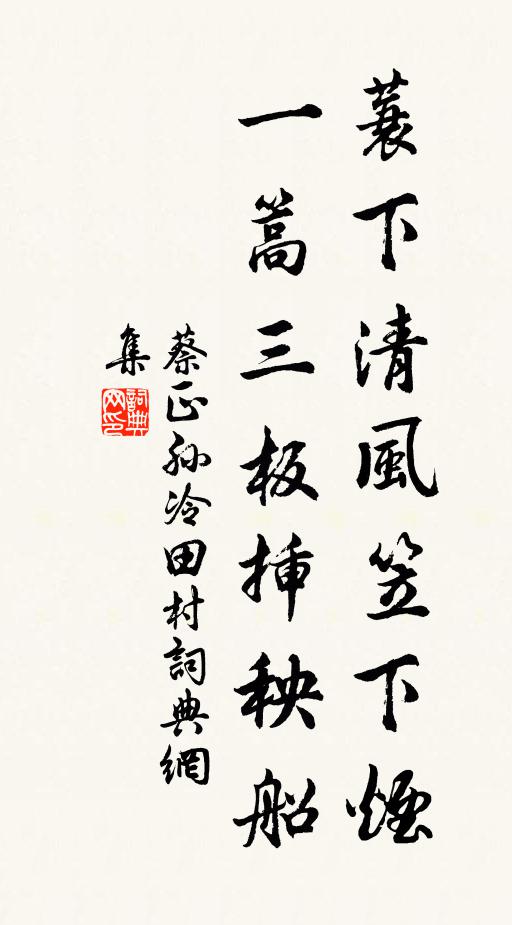 蓑下清風笠下煙
一篙三板插秧船
蔡正孫冷田村詞典網
集
詞典网印